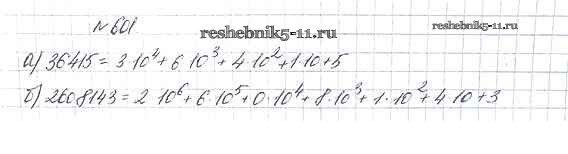 №601
reshebnik5-11.ru
reshebnik5-11.ru
а) 36415 = 3·10⁴ + 6·10³ + 4·10² + 1·10 + 5
б) 2608143 = 2·10⁶ + 6·10⁵ + 0·10⁴ + 8·10³ + 1·10² + 4·10 + 3